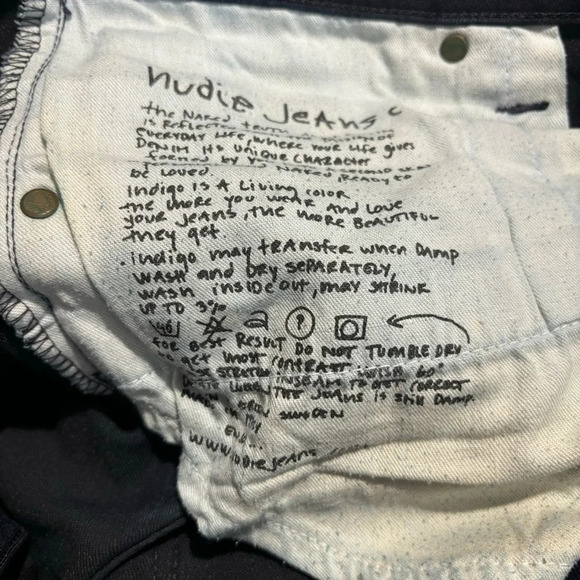 nudie Jeans c
the NAKED truth
is REFLEC
EVERYDAY LIFE, WHERE YOUR LIFE gives
DENIM ITS UNIQUE CHARACTER
formed by SECOND
be LOVED.
Indigo IS A Living color
the more you WEAR AND LOVE
YOUR JEANS, THE MORE BEAUTIFUL
they get.
. indigo may tRANSFER when DAmp
WASH AND DRY SEPARATELY,
WASH inside out, may SHRINK
UP TO 3%
FOR BEST RESULT DO NOT TUMBLE DRY
get most CONTRAST WASH 60°
STRETCH INSEAM TO GET CORRECT
THE JEANS IS STILL DAMP.
SWEDEN
END...